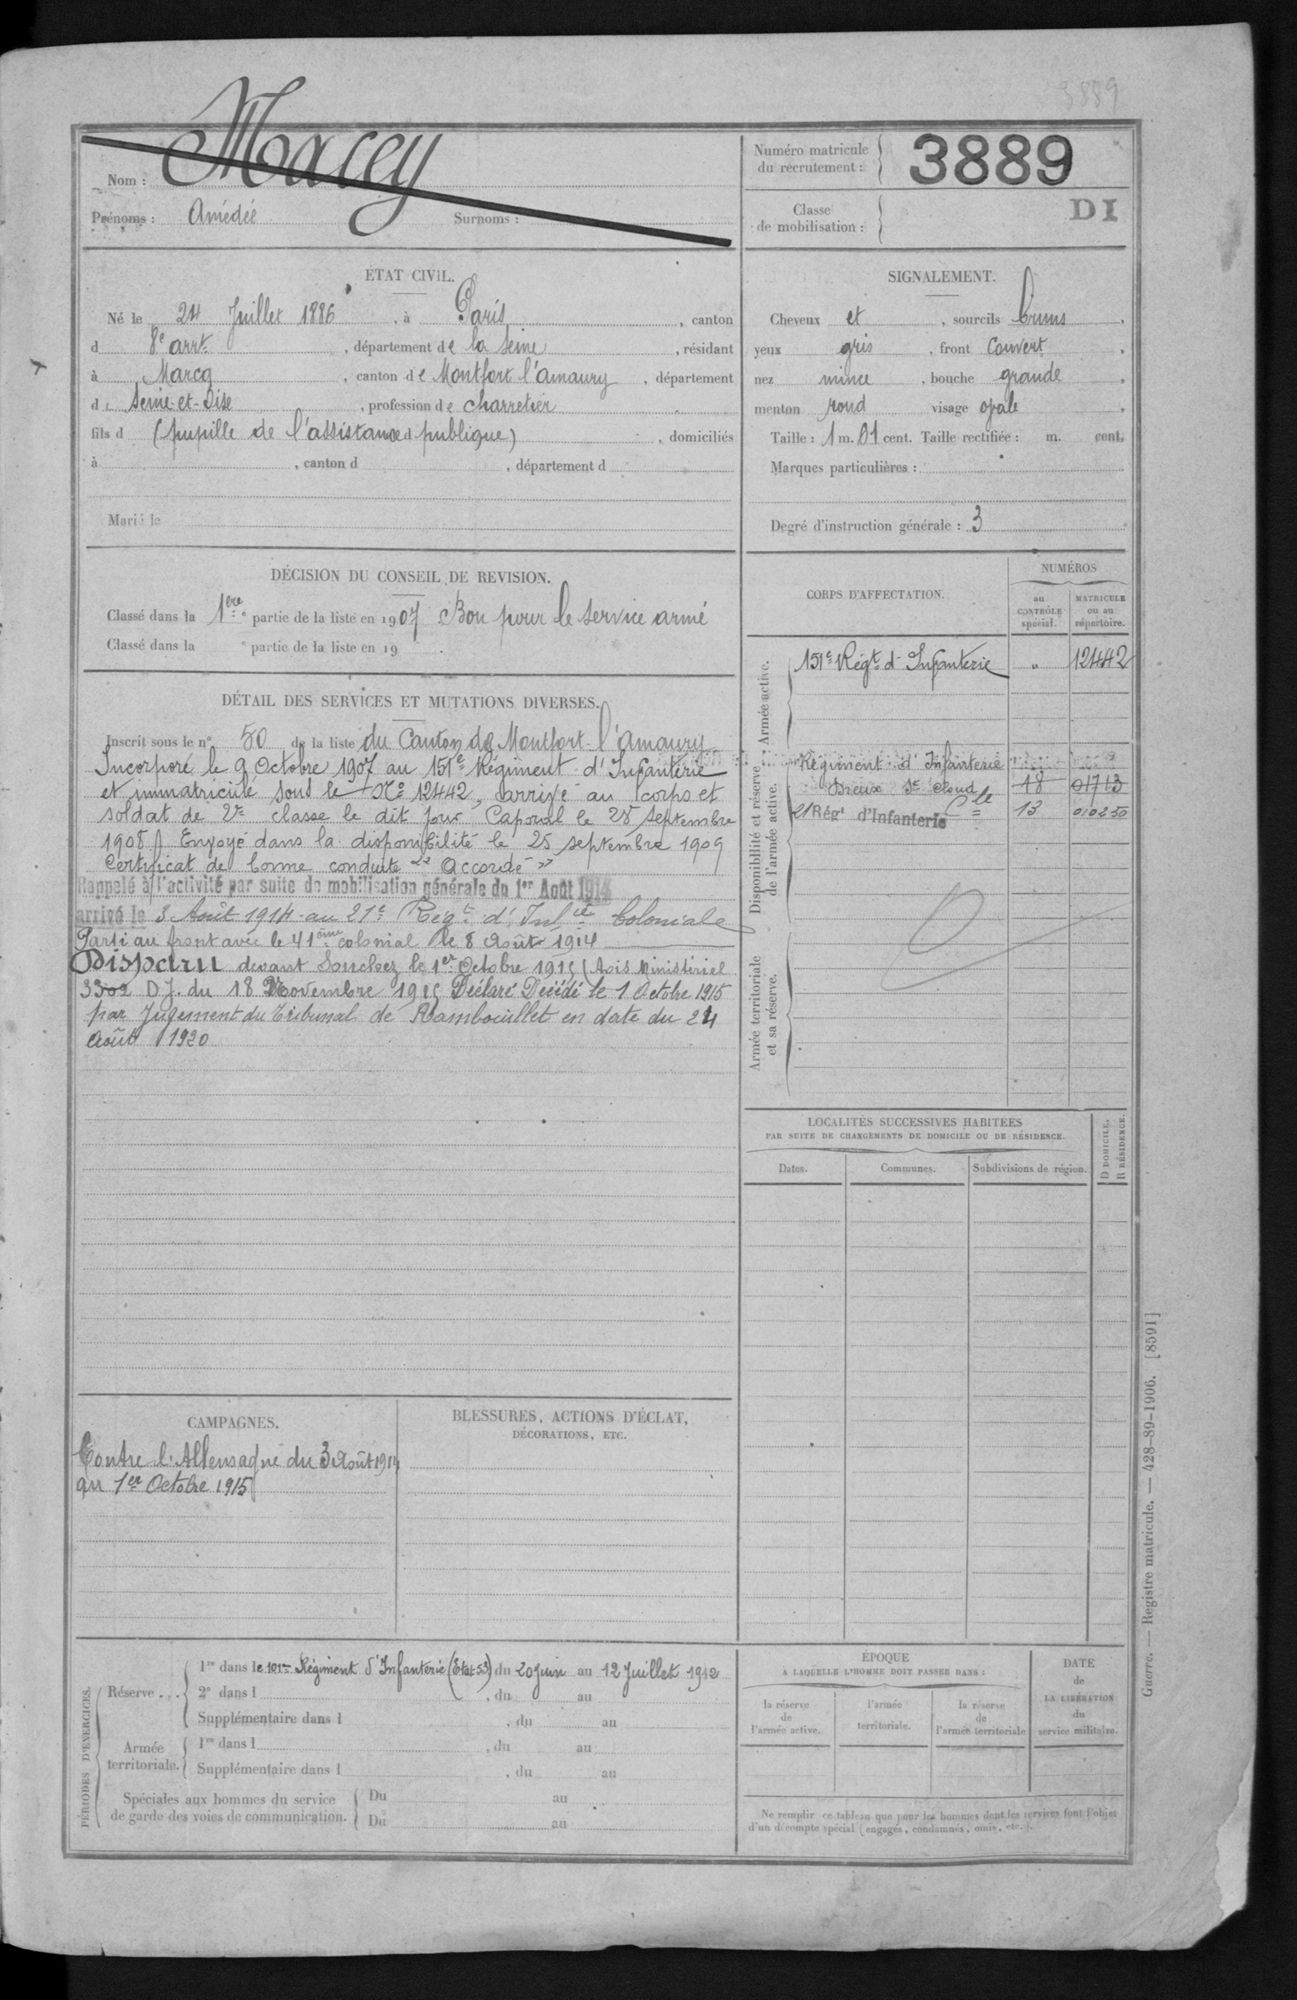 3889
Nom : Marcey
Prénoms : Amédée Surnoms :
Numéro matricule du recrutement : 3889
Classe de mobilisation :
DI
ÉTAT CIVIL.
Né le 24 Juillet 1886, à Paris, canton
d 8e arrt, département de la Seine, résidant
à Marcq, canton de Montfort l'amaury, département
de Seine-et-Oise, profession de charretier
fils d (pupille de l'assistance et d publique), domiciliés
à , canton d , département d
Marié le
SIGNALEMENT.
Cheveux et , sourcils bruns
yeux gris, front couvert
nez mince, bouche grande
menton rond visage ovale
Taille : 1 m. 01 cent. Taille rectifiée : m. cent.
Marques particulières :
Degré d'instruction générale : 3
DÉCISION DU CONSEIL DE REVISION.
Classé dans la 1ère partie de la liste en 1907 Bon pour le service armé
Classé dans la e partie de la liste en 19 .
DÉTAIL DES SERVICES ET MUTATIONS DIVERSES.
Inscrit sous le n° 50 de la liste du Canton de Montfort l'amaury
Incorporé le 9 Octobre 1907 au 151e Régiment d'Infanterie
et immatriculé sous le No 12442, arrivé au corps et
soldat de 2e classe le dit jour Caporal le 28 septembre
1908 Envoyé dans la disponibilité le 25 septembre 1909
Certificat de bonne conduite "accordé"
Rappelé à l'activité par suite de mobilisation générale du 1er Août 1914
arrivé le 3 Août 1914 au 21e Régt d'Infie Coloniale
Parti au front avec le 41ème colonial le 8 Août 1914
Disparu devant Souchez le 1er Octobre 1915 (Avis Ministériel
3302 DJ. du 18 Novembre 1915 Déclaré Décédé le 1 Octobre 1915
par Jugement du Tribunal de Rambouillet en date du 24
Août 1920
CORPS D'AFFECTATION.
NUMÉROS
au CONTRÔLE spécial.
MATRICULE ou au répertoire.
Armée active.
151e Régt d'Infanterie " 12442
Disponibilité et réserve de l'armée active.
Régiment d'Infanterie
Dreux St Cloud 18 01713
21 Régt d'Infanterie Cle 13 010250
Armée territoriale et sa réserve.
LOCALITÉS SUCCESSIVES HABITÉES
PAR SUITE DE CHANGEMENTS DE DOMICILE OU DE RÉSIDENCE.
Dates. Communes. Subdivisions de région. D DOMICILE. R RÉSIDENCE.
CAMPAGNES.
Contre l'Allemagne du 3 Août 1914
au 1er Octobre 1915
BLESSURES, ACTIONS D'ÉCLAT,
DÉCORATIONS, ETC.
PÉRIODES D'EXERCICES.
Réserve...
1re dans le 101me Régiment d'Infanterie (Etat 53) du 20 juin au 12 Juillet 1912
2e dans l , du au
Supplémentaire dans l , du au
Armée territoriale.
1re dans l , du au
Supplémentaire dans l , du au
Spéciales aux hommes du service de garde des voies de communication.
Du au
Du au
ÉPOQUE
À LAQUELLE L'HOMME DOIT PASSER DANS :
la réserve de l'armée active.
l'armée territoriale.
la réserve de l'armée territoriale
DATE de LA LIBÉRATION du service militaire.
Ne remplir ce tableau que pour les hommes dont les services font l'objet
d'un décompte spécial (engagés, condamnés, omis, etc.).
Guerre. — Registre matricule. — 428-89-1906. [8591]